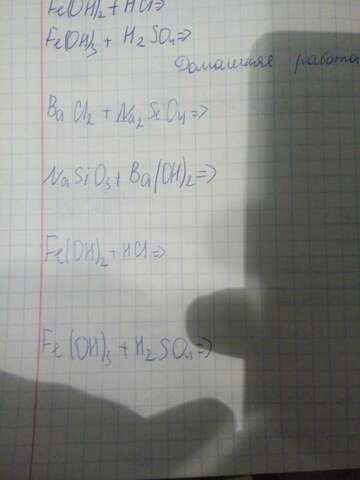 Fe(OH)2 + HCl=>
Fe(OH)3 + H2SO4=>
Домашняя работа
BaCl2 + Na2SeO4=>
NaSiO3 + Ba(OH)2=>
Fe(OH)2 + HCl=>
Fe(OH)3 + H2SO4=>